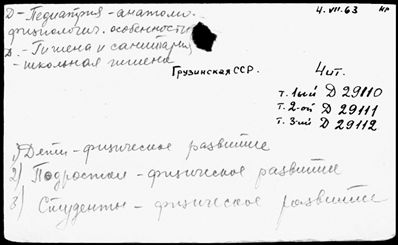 Д - Педиатрия - анатомо.
физиологич. особенности
Д. - Гигиена и санитария
- школьная гигиена
4.VII.63 нр
Грузинская ССР.
Чит.
т. 1ый Д 29110
т. 2-ой Д 29111
т. 3-ий Д 29112
1) Дети - физическое развитие
2) Подростки - физическое развитие
3) Студенты - физическое развитие